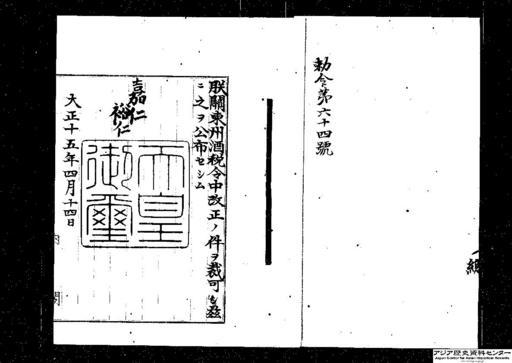 勅令第六十四號
朕關東州酒税令中改正ノ件ヲ裁可シ玆
ニ之ヲ公布セシム
嘉仁
裕仁
天皇御璽
大正十五年四月十四日
内閣
アジア歴史資料センター
Japan Center for Asian Historical Records